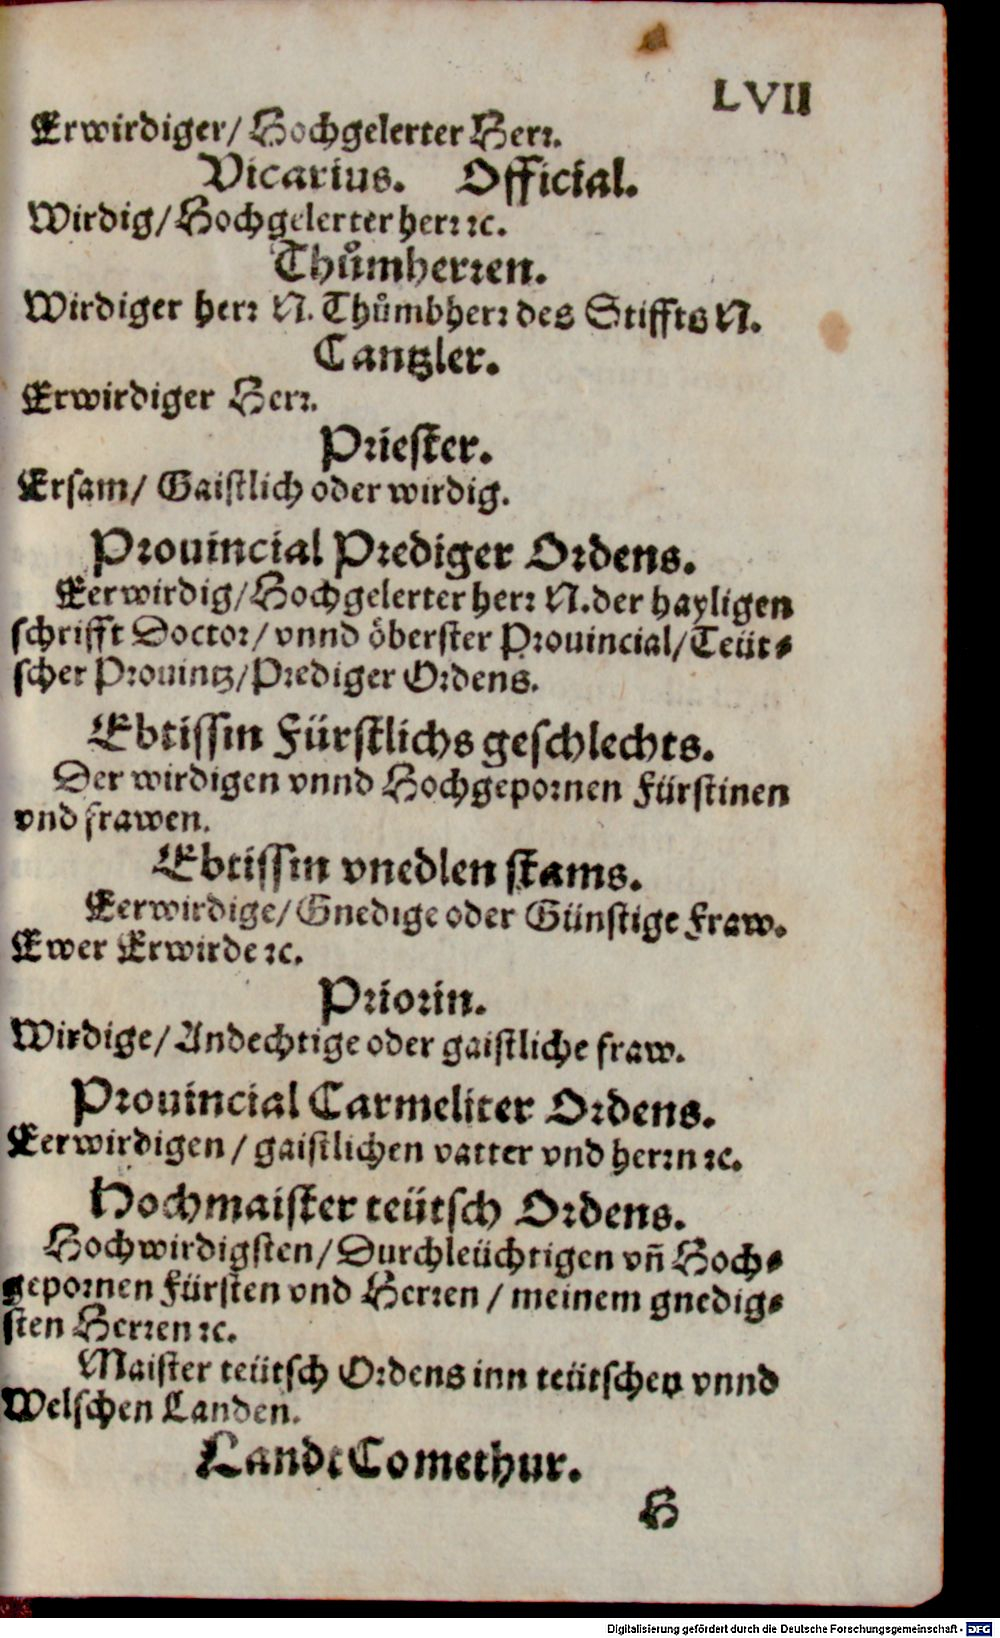 LVII
Erwirdiger/ Hochgelerter Herr.
Vicarius. Official.
Wirdig/ Hochgelerter herr ꝛc.
Thuͦmherren.
Wirdiger herr N. Thuͦmbherr des Stiffts N.
Cantzler.
Erwirdiger Herr.
Priester.
Ersam/ Gaistlich oder wirdig.
Prouincial Prediger Ordens.
Eerwirdig/ Hochgelerter herr N. der hayligen
schrifft Doctor/ vnnd öberster Prouincial/ Teüt⸗
scher Prouintz/ Prediger Ordens.
Ebtissin Fürstlichs geschlechts.
Der wirdigen vnnd Hochgepornen Fürstinen
vnd frawen.
Ebtissin vnedlen stams.
Eerwirdige/ Gnedige oder Günstige Fraw.
Ewer Erwirde ꝛc.
Priorin.
Wirdige/ Andechtige oder gaistliche fraw.
Prouincial Carmeliter Ordens.
Eerwirdigen/ gaistlichen vatter vnd herrn ꝛc.
Hochmaister teütsch Ordens.
Hochwirdigsten/ Durchleüchtigen vñ Hoch⸗
gepornen Fürsten vnd Herren/ meinem gnedig⸗
sten Herren ꝛc.
Maister teütsch Ordens inn teütschen vnnd
Welschen Landen.
Landt Comethur.
H
Digitalisierung gefördert durch die Deutsche Forschungsgemeinschaft - DFG